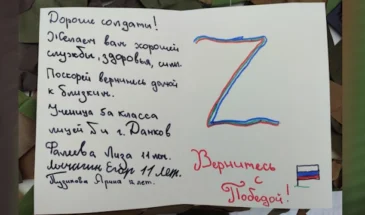 Дорогие солдаты!
Желаем вам хорошей
службы, здоровья, силы
Поскорей вернитесь домой
к близким.
Ученица 5а класса
лицей 6 и г. Данков
Лиза 11 лет.
Егор 11 Лет.
Арина лет.
Z
Вернитесь
с
Победой!